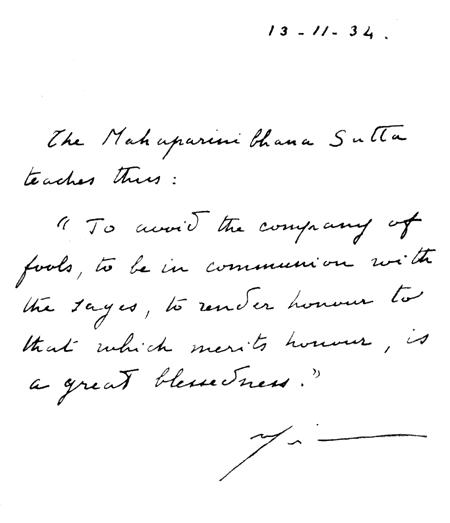 13-11-34.
The Mahaparinibhana Sutta
teaches thus:
"To avoid the company of
fools, to be in communion with
the sages, to render honour to
that which merits honour, is
a great blessedness."